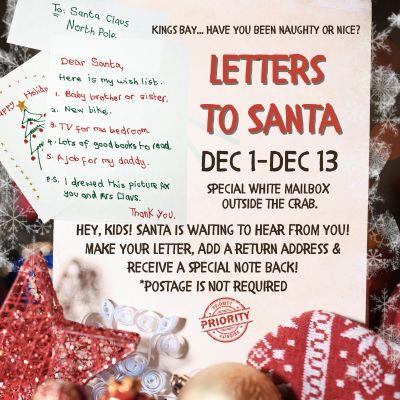 To: Santa Claus
North Pole.
Happy Holidays
Dear Santa,
Here is my wish list.
1. Baby brother or sister.
2. New bike.
3. TV for ma bedroom
4. Lots of good books to read.
5. A job for my daddy.
P.S. I drewed this picture for
you and Mrs Claus.
Thank You.
KINGS BAY... HAVE YOU BEEN NAUGHTY OR NICE?
LETTERS
TO SANTA
DEC 1-DEC 13
SPECIAL WHITE MAILBOX
OUTSIDE THE CRAB.
HEY, KIDS! SANTA IS WAITING TO HEAR FROM YOU!
MAKE YOUR LETTER, ADD A RETURN ADDRESS &
RECEIVE A SPECIAL NOTE BACK!
*POSTAGE IS NOT REQUIRED
PRIORITY
PRIORITY
PRIORITY